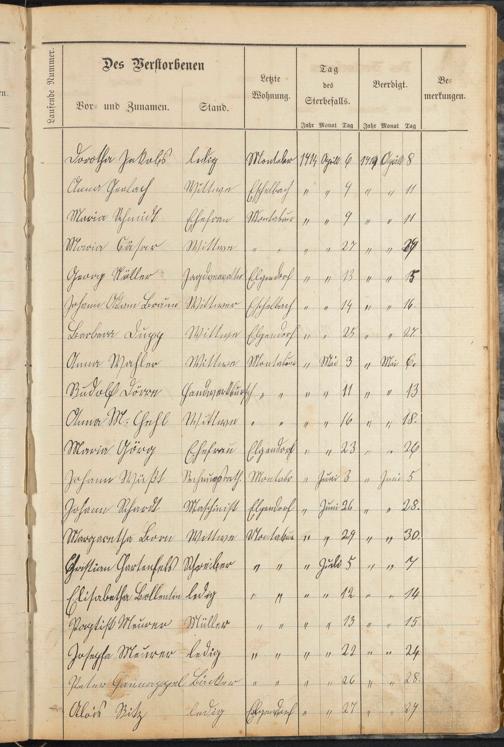 Laufende Nummer.
Des Verstorbenen
Vor- und Zunamen. Stand.
Letzte Wohnung.
Tag des Sterbefalls.
Beerdigt.
Bemerkungen.
Jahr Monat Tag Jahr Monat Tag
Dorotha Jakobs ledig Montabr 1914 April 6 April 8
Anna Gerlach Wittwe Eschelbach " " 9 " " 11
Maria Schmidt Ehefrau Montabur " " 9 " " 11
Maria Cäsar Wittwe " " " 27 " " 29
Georg Müller Elgendorf " " 13 " " 15
Johann Adam Bräune Wittwer Eschelbach " " 14 " " 16
Barbara Wittwe Elgendorf " " 25 " " 27
Anna Wittwe Montabur " Mai 3 " Mai 6
Rudolf Dörre " " " 11 " " 13
Anna M. Wittwe " " " 16 " " 18
Maria Görg Ehefrau Elgendorf " " 23 " " 26
Johann Montabr " Juni 3 " Juni 5
Johann Maschinist Elgendorf " Juni 26 " " 28
Margaretha Born Wittwe Montabur " " 29 " " 30
Christian Gartenfels Schreiber " " " Juli 5 " " 7
Elisabetha ledig " " " " 12 " " 14
Baptist Meurer Müller " " " " 13 " " 15
Josepha Meurer ledig " " " " 22 " " 24
Peter Bäcker " " " " 26 " " 28
Alois ledig Elgendorf " " 27 " " 29